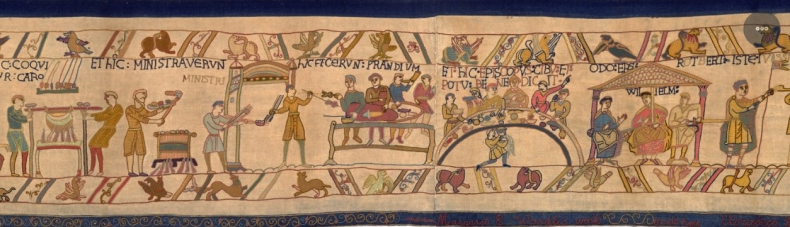 C:COQVI
VR:CARO
ET hIC: MINISTRAVERVN
MINISTRI
hIC FECERVN: PRANDIVM
ET hIC: EPISCOPVS: CIBV: ET
POTV: BENEDICIT
ODO: EPS:
WILLELM:
ROTBERT:
ISTE